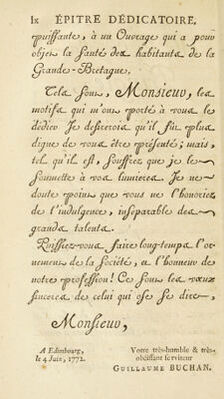 lx ÉPITRE DÉDICATOIRE.
puissante, à un Ouvrage qui a pour
objet la Santé des habitants de la
Grande-Bretagne.
Tels sont, Monsieur, les
motifs qui m'ont porté à vous le
dédier. Je desirerois qu'il fût plus
digne de vous être présenté; mais,
tel qu'il est, souffrez que je le
soumette à vos lumieres. Je ne
doute point que vous ne l'honoriez
de l'indulgence, inséparable des
grands talents.
Puissiez-vous faire long-temps l'or-
nement de la Société, et l'honneur de
notre profession! Ce sont les vœux
sinceres de celui qui ose se dire,
Monsieur,
A Edimbourg,
le 4 Juin, 1772.
Votre très-humble & très-
obéissant serviteur
GUILLAUME BUCHAN.